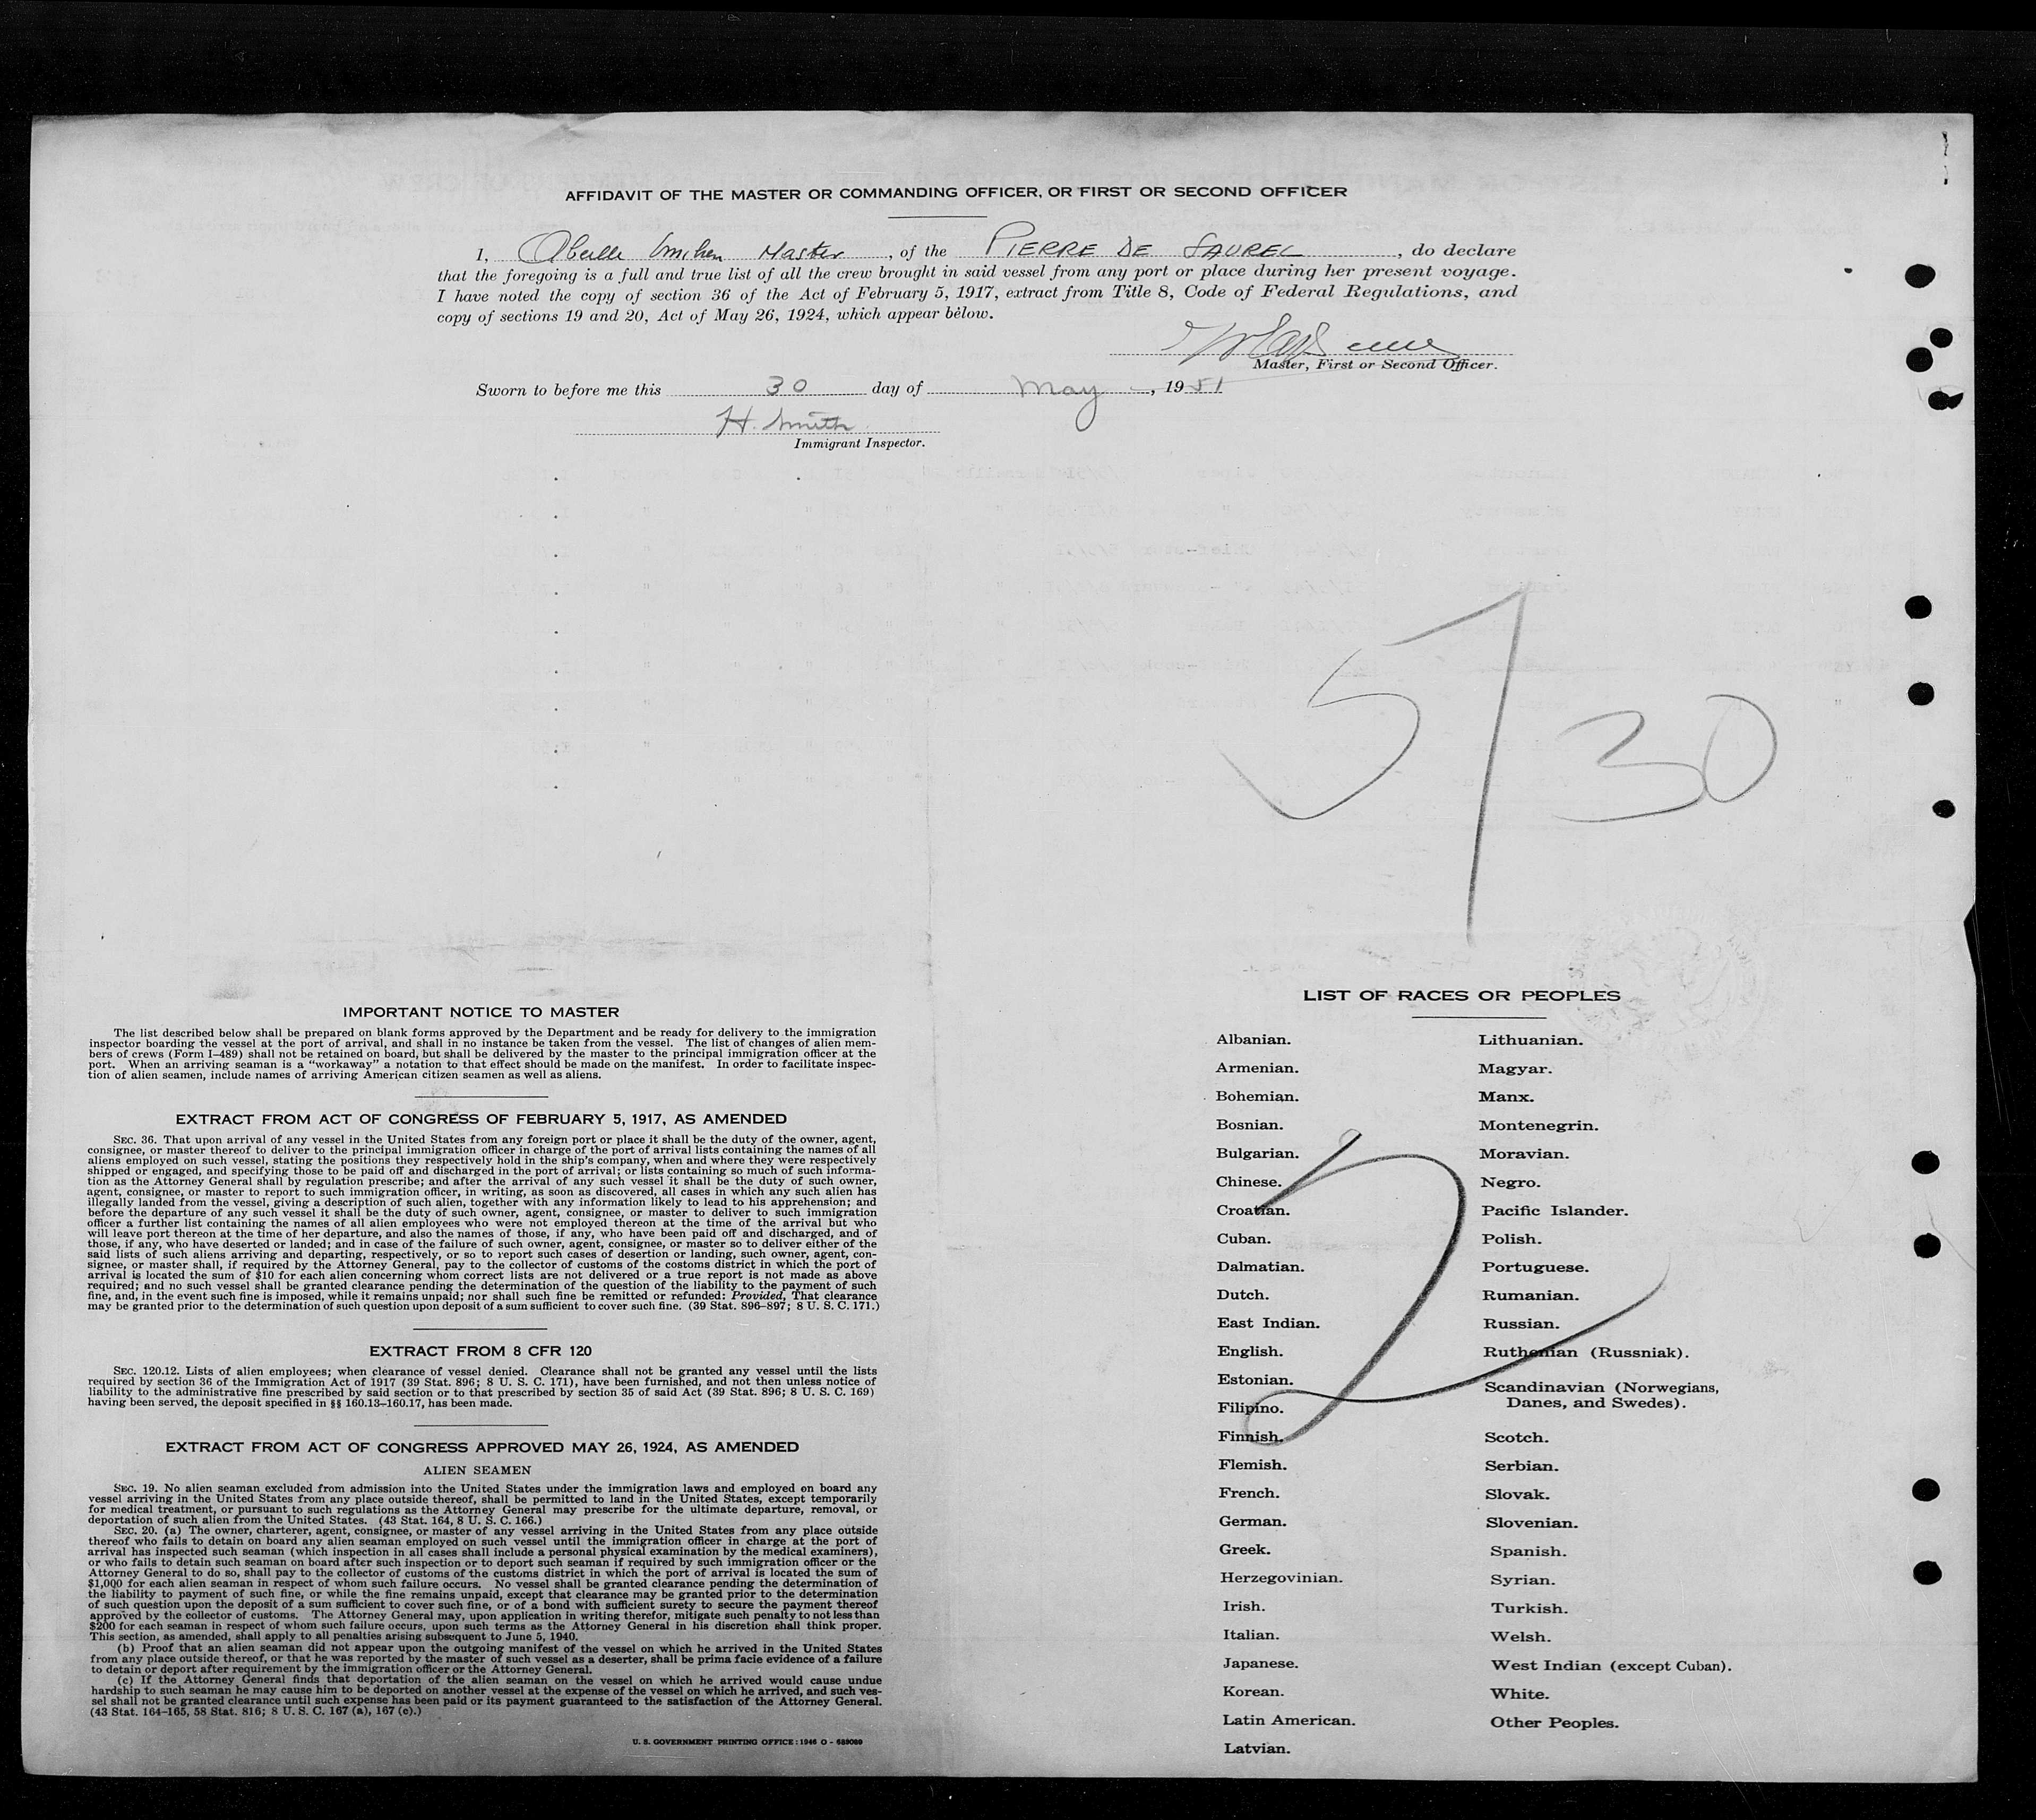 AFFIDAVIT OF THE MASTER OR COMMANDING OFFICER, OR FIRST OR SECOND OFFICER
I, Master, of the PIERRE DE SAUREL, do declare
that the foregoing is a full and true list of all the crew brought in said vessel from any port or place during her present voyage.
I have noted the copy of section 36 of the Act of February 5, 1917, extract from Title 8, Code of Federal Regulations, and
copy of sections 19 and 20, Act of May 26, 1924, which appear below.
Master, First or Second Officer.
Sworn to before me this 30 day of May, 1951
H. Smith
Immigrant Inspector.
5/30
IMPORTANT NOTICE TO MASTER
The list described below shall be prepared on blank forms approved by the Department and be ready for delivery to the immigration
inspector boarding the vessel at the port of arrival, and shall in no instance be taken from the vessel. The list of changes of alien mem-
bers of crews (Form I–489) shall not be retained on board, but shall be delivered by the master to the principal immigration officer at the
port. When an arriving seaman is a "workaway" a notation to that effect should be made on the manifest. In order to facilitate inspec-
tion of alien seamen, include names of arriving American citizen seamen as well as aliens.
EXTRACT FROM ACT OF CONGRESS OF FEBRUARY 5, 1917, AS AMENDED
SEC. 36. That upon arrival of any vessel in the United States from any foreign port or place it shall be the duty of the owner, agent,
consignee, or master thereof to deliver to the principal immigration officer in charge of the port of arrival lists containing the names of all
aliens employed on such vessel, stating the positions they respectively hold in the ship's company, when and where they were respectively
shipped or engaged, and specifying those to be paid off and discharged in the port of arrival; or lists containing so much of such informa-
tion as the Attorney General shall by regulation prescribe; and after the arrival of any such vessel it shall be the duty of such owner,
agent, consignee, or master to report to such immigration officer, in writing, as soon as discovered, all cases in which any such alien has
illegally landed from the vessel, giving a description of such alien, together with any information likely to lead to his apprehension; and
before the departure of any such vessel it shall be the duty of such owner, agent, consignee, or master to deliver to such immigration
officer a further list containing the names of all alien employees who were not employed thereon at the time of the arrival but who
will leave port thereon at the time of her departure, and also the names of those, if any, who have been paid off and discharged, and of
those, if any, who have deserted or landed; and in case of the failure of such owner, agent, consignee, or master so to deliver either of the
said lists of such aliens arriving and departing, respectively, or so to report such cases of desertion or landing, such owner, agent, con-
signee, or master shall, if required by the Attorney General, pay to the collector of customs of the costoms district in which the port of
arrival is located the sum of $10 for each alien concerning whom correct lists are not delivered or a true report is not made as above
required; and no such vessel shall be granted clearance pending the determination of the question of the liability to the payment of such
fine, and, in the event such fine is imposed, while it remains unpaid; nor shall such fine be remitted or refunded: Provided, That clearance
may be granted prior to the determination of such question upon deposit of a sum sufficient to cover such fine. (39 Stat. 896–897; 8 U. S. C. 171.)
EXTRACT FROM 8 CFR 120
SEC. 120.12. Lists of alien employees; when clearance of vessel denied. Clearance shall not be granted any vessel until the lists
required by section 36 of the Immigration Act of 1917 (39 Stat. 896; 8 U. S. C. 171), have been furnished, and not then unless notice of
liability to the administrative fine prescribed by said section or to that prescribed by section 35 of said Act (39 Stat. 896; 8 U. S. C. 169)
having been served, the deposit specified in §§ 160.13–160.17, has been made.
EXTRACT FROM ACT OF CONGRESS APPROVED MAY 26, 1924, AS AMENDED
ALIEN SEAMEN
SEC. 19. No alien seaman excluded from admission into the United States under the immigration laws and employed on board any
vessel arriving in the United States from any place outside thereof, shall be permitted to land in the United States, except temporarily
for medical treatment, or pursuant to such regulations as the Attorney General may prescribe for the ultimate departure, removal, or
deportation of such alien from the United States. (43 Stat. 164, 8 U. S. C. 166.)
SEC. 20. (a) The owner, charterer, agent, consignee, or master of any vessel arriving in the United States from any place outside
thereof who fails to detain on board any alien seaman employed on such vessel until the immigration officer in charge at the port of
arrival has inspected such seaman (which inspection in all cases shall include a personal physical examination by the medical examiners),
or who fails to detain such seaman on board after such inspection or to deport such seaman if required by such immigration officer or the
Attorney General to do so, shall pay to the collector of customs of the customs district in which the port of arrival is located the sum of
$1,000 for each alien seaman in respect of whom such failure occurs. No vessel shall be granted clearance pending the determination of
the liability to payment of such fine, or while the fine remains unpaid, except that clearance may be granted prior to the determination
of such question upon the deposit of a sum sufficient to cover such fine, or of a bond with sufficient surety to secure the payment thereof
approved by the collector of customs. The Attorney General may, upon application in writing therefor, mitigate such penalty to not less than
$200 for each seaman in respect of whom such failure occurs, upon such terms as the Attorney General in his discretion shall think proper.
This section, as amended, shall apply to all penalties arising subsequent to June 5, 1940.
(b) Proof that an alien seaman did not appear upon the outgoing manifest of the vessel on which he arrived in the United States
from any place outside thereof, or that he was reported by the master of such vessel as a deserter, shall be prima facie evidence of a failure
to detain or deport after requirement by the immigration officer or the Attorney General.
(c) If the Attorney General finds that deportation of the alien seaman on the vessel on which he arrived would cause undue
hardship to such seaman he may cause him to be deported on another vessel at the expense of the vessel on which he arrived, and such ves-
sel shall not be granted clearance until such expense has been paid or its payment guaranteed to the satisfaction of the Attorney General.
(43 Stat. 164–165, 58 Stat. 816; 8 U. S. C. 167 (a), 167 (c).)
U. S. GOVERNMENT PRINTING OFFICE : 1946 O - 689089
LIST OF RACES OR PEOPLES
Albanian.
Armenian.
Bohemian.
Bosnian.
Bulgarian.
Chinese.
Croatian.
Cuban.
Dalmatian.
Dutch.
East Indian.
English.
Estonian.
Filipino.
Finnish.
Flemish.
French.
German.
Greek.
Herzegovinian.
Irish.
Italian.
Japanese.
Korean.
Latin American.
Latvian.
Lithuanian.
Magyar.
Manx.
Montenegrin.
Moravian.
Negro.
Pacific Islander.
Polish.
Portuguese.
Rumanian.
Russian.
Ruthenian (Russniak).
Scandinavian (Norwegians,
Danes, and Swedes).
Scotch.
Serbian.
Slovak.
Slovenian.
Spanish.
Syrian.
Turkish.
Welsh.
West Indian (except Cuban).
White.
Other Peoples.
2